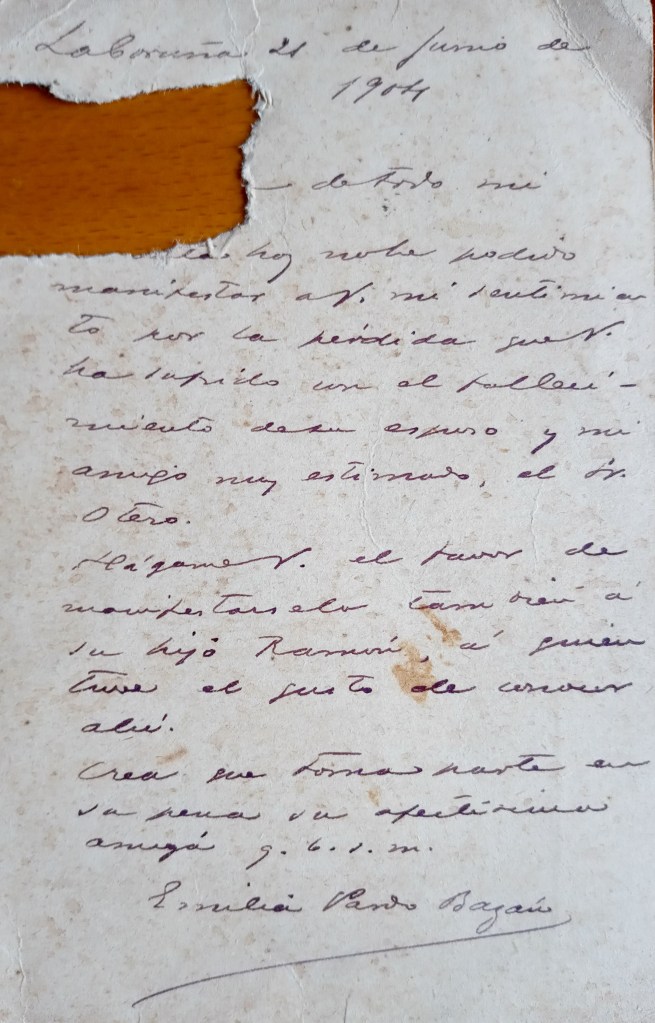 La Coruña 21 de Junio de
1904
de todo mi
hoy no he podido
manifestar a V. mi sentimien
to por la pérdida que V.
ha sufrido con el falleci-
miento de su esposo y mi
amigo muy estimado, el Sr.
Otero.
Hágame V. el favor de
manifestarselo tambien á
su hijo Ramón, á quien
tuve el gusto de conocer
ahí.
Crea que toma parte en
su pena su afectísima
amiga q. b. s. m.
Emilia Pardo Bazán